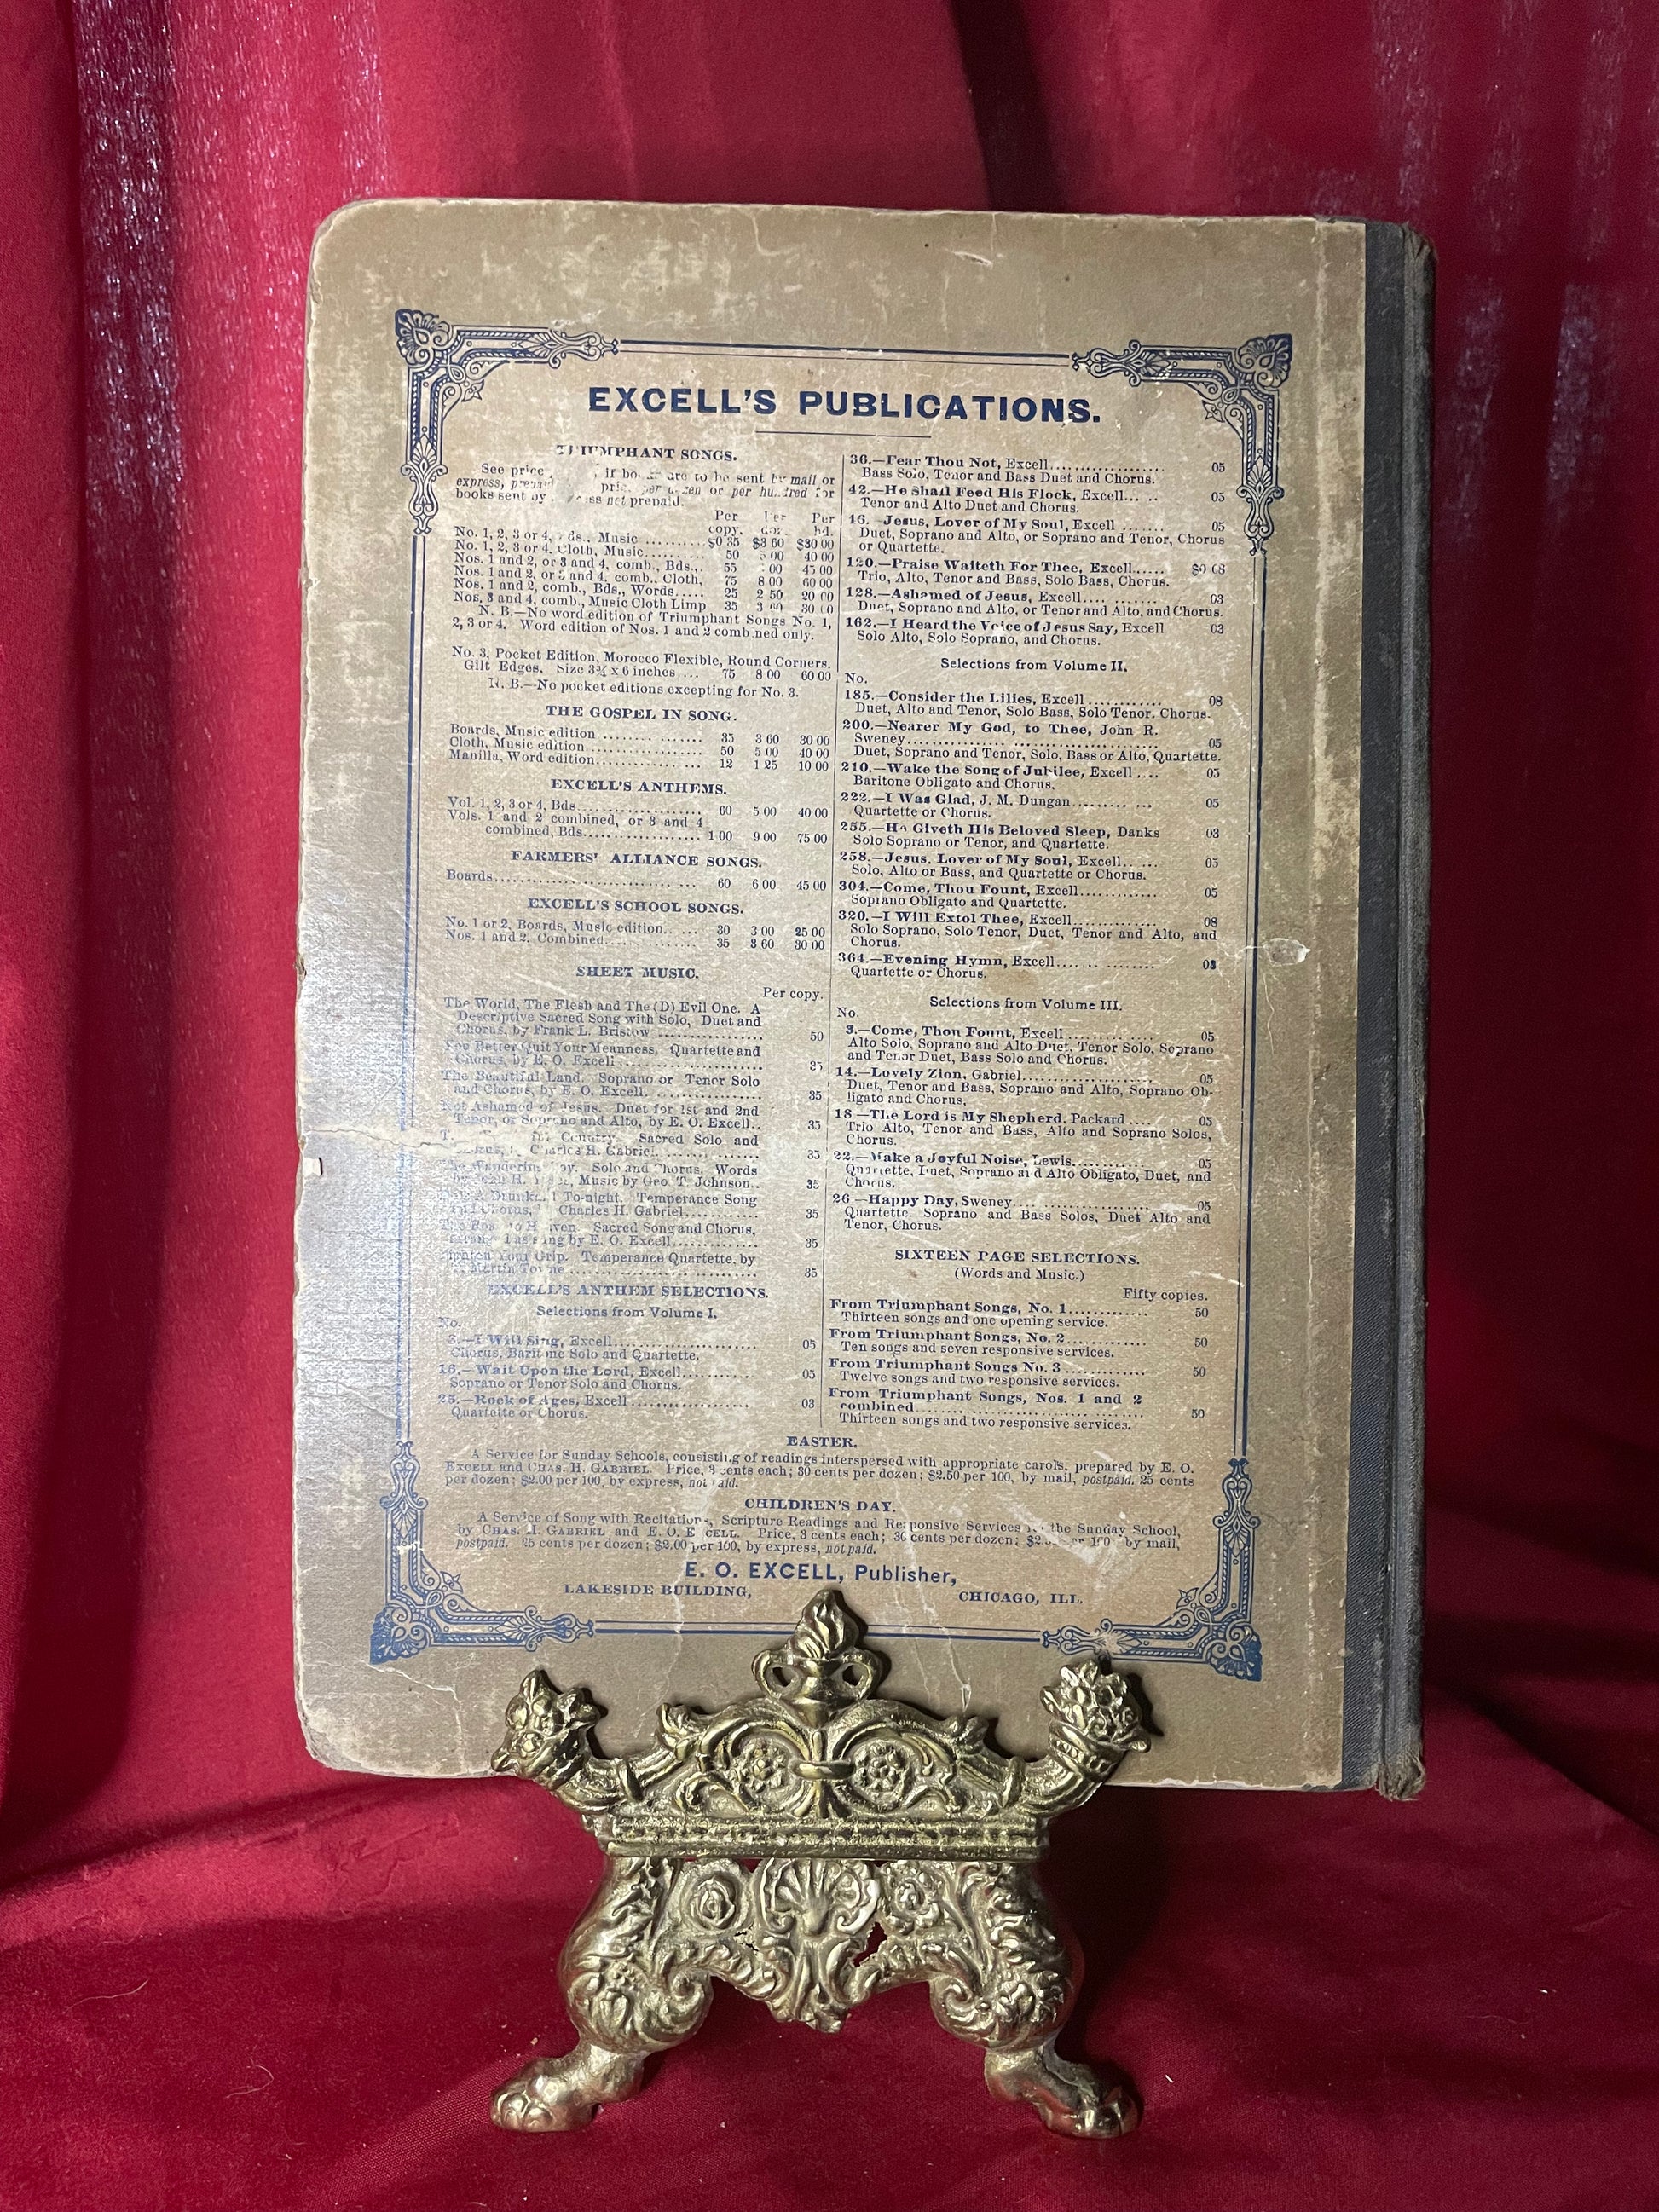 EXCELL'S PUBLICATIONS.
TRIUMPHANT SONGS.
See price if are to be sent by mail or
express, per dozen or per hundred for
books sent by not prepaid.
Per Per Per
copy. doz. hd.
No. 1, 2, 3 or 4, Music .......... $0 35 $3 60 $30 00
No. 1, 2, 3 or 4, Cloth, Music.......... 50 5 00 40 00
Nos. 1 and 2, or 3 and 4, comb., Bds... 55 00 45 00
Nos. 1 and 2, or 3 and 4, comb., Cloth, 75 8 00 60 00
Nos. 1 and 2, comb., Bds., Words..... 25 2 50 20 00
Nos. 3 and 4, comb., Music Cloth Limp 35 3 60 30 00
N. B.—No word edition of Triumphant Songs No. 1,
2, 3 or 4. Word edition of Nos. 1 and 2 combined only.
No. 3, Pocket Edition, Morocco Flexible, Round Corners.
Gilt Edges. Size 3¾ x 6 inches ... 75 8 00 60 00
N. B.—No pocket editions excepting for No. 3.
THE GOSPEL IN SONG.
Boards, Music edition ................ 35 3 60 30 00
Cloth, Music edition.................. 50 5 00 40 00
Manilla, Word edition................. 12 1 25 10 00
EXCELL'S ANTHEMS.
Vol. 1, 2, 3 or 4, Bds................... 60 5 00 40 00
Vols. 1 and 2 combined, or 3 and 4
combined, Bds.................. 1 00 9 00 75 00
FARMERS' ALLIANCE SONGS.
Boards................................ 60 6 00 45 00
EXCELL'S SCHOOL SONGS.
No. 1 or 2, Boards, Music edition...... 30 3 00 25 00
Nos. 1 and 2, Combined............... 35 3 60 30 00
SHEET MUSIC.
Per copy.
The World, The Flesh and The (D) Evil One. A
Descriptive Sacred Song with Solo, Duet and
Chorus, by Frank L. Bristow ................ 50
You Better Quit Your Meanness. Quartette and
Chorus, by E. O. Excell...................... 35
The Beautiful Land. Soprano or Tenor Solo
and Chorus, by E. O. Excell.................. 35
Not Ashamed of Jesus. Duet for 1st and 2nd
Tenor, or Soprano and Alto, by E. O. Excell.. 35
Country. Sacred Solo and
Charles H. Gabriel............. 35
The Wandering Boy. Solo and Chorus. Words
by H. Music by Geo. T. Johnson.. 35
A To-night. Temperance Song
Chorus, Charles H. Gabriel........... 35
Sacred Song and Chorus,
by E. O. Excell............... 35
Tighten Your Grip. Temperance Quartette, by
Martin Towne ............................ 35
EXCELL'S ANTHEM SELECTIONS.
Selections from Volume I.
No.
3.—I Will Sing, Excell..................... 05
Chorus, Baritone Solo and Quartette.
16.—Wait Upon the Lord, Excell........... 05
Soprano or Tenor Solo and Chorus.
25.—Rock of Ages, Excell .................. 03
Quartette or Chorus.
36.—Fear Thou Not, Excell.................. 05
Bass Solo, Tenor and Bass Duet and Chorus.
42.—He Shall Feed His Flock, Excell... .. 05
Tenor and Alto Duet and Chorus.
46.—Jesus, Lover of My Soul, Excell ....... 05
Duet, Soprano and Alto, or Soprano and Tenor, Chorus
or Quartette.
120.—Praise Waiteth For Thee, Excell..... $0 08
Trio, Alto, Tenor and Bass, Solo Bass, Chorus.
128.—Ashamed of Jesus, Excell.... ....... 03
Duet, Soprano and Alto, or Tenor and Alto, and Chorus.
162.—I Heard the Voice of Jesus Say, Excell 03
Solo Alto, Solo Soprano, and Chorus.
Selections from Volume II.
No.
185.—Consider the Lilies, Excell ......... 08
Duet, Alto and Tenor, Solo Bass, Solo Tenor. Chorus.
200.—Nearer My God, to Thee, John R.
Sweney................................ 05
Duet, Soprano and Tenor, Solo, Bass or Alto, Quartette.
210.—Wake the Song of Jubilee, Excell .... 05
Baritone Obligato and Chorus.
222.—I Was Glad, J. M. Dungan......... ... 05
Quartette or Chorus.
255.—He Giveth His Beloved Sleep, Danks 03
Solo Soprano or Tenor, and Quartette.
258.—Jesus, Lover of My Soul, Excell.. .... 05
Solo, Alto or Bass, and Quartette or Chorus.
304.—Come, Thou Fount, Excell............ 05
Soprano Obligato and Quartette.
320.—I Will Extol Thee, Excell............. 08
Solo Soprano, Solo Tenor, Duet, Tenor and Alto, and
Chorus.
364.—Evening Hymn, Excell....... ........ 03
Quartette or Chorus.
Selections from Volume III.
No.
3.—Come, Thou Fount, Excell ............. 05
Alto Solo, Soprano and Alto Duet, Tenor Solo, Soprano
and Tenor Duet, Bass Solo and Chorus.
14.—Lovely Zion, Gabriel................... 05
Duet, Tenor and Bass, Soprano and Alto, Soprano Ob-
ligato and Chorus.
18—The Lord is My Shepherd, Packard .... 05
Trio Alto, Tenor and Bass, Alto and Soprano Solos,
Chorus.
22.—Make a Joyful Noise, Lewis............ 05
Quartette, Duet, Soprano and Alto Obligato, Duet, and
Chorus.
26—Happy Day, Sweney..................... 05
Quartette. Soprano and Bass Solos, Duet Alto and
Tenor, Chorus.
SIXTEEN PAGE SELECTIONS.
(Words and Music.)
Fifty copies.
From Triumphant Songs, No. 1............ 50
Thirteen songs and one opening service.
From Triumphant Songs, No. 2............ 50
Ten songs and seven responsive services.
From Triumphant Songs No. 3............. 50
Twelve songs and two responsive services.
From Triumphant Songs, Nos. 1 and 2
combined................................ 50
Thirteen songs and two responsive services.
EASTER.
A Service for Sunday Schools, consisting of readings interspersed with appropriate carols, prepared by E. O.
EXCELL and CHAS. H. GABRIEL. Price, 3 cents each; 30 cents per dozen; $2.50 per 100, by mail, postpaid. 25 cents
per dozen; $2.00 per 100, by express, not paid.
CHILDREN'S DAY.
A Service of Song with Recitations, Scripture Readings and Responsive Services for the Sunday School,
by CHAS. H. GABRIEL and E. O. EXCELL. Price, 3 cents each; 30 cents per dozen; per 100 by mail,
postpaid. 25 cents per dozen; $2.00 per 100, by express, not paid.
E. O. EXCELL, Publisher,
LAKESIDE BUILDING, CHICAGO, ILL.